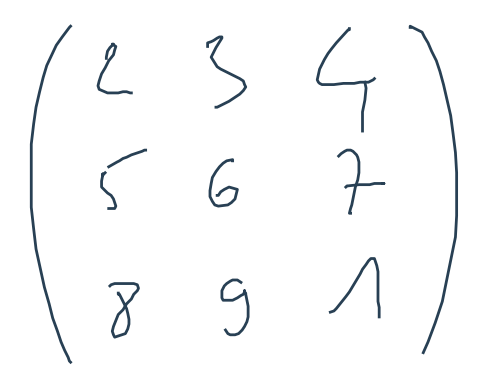 2 3 4
5 6 7
8 9 1